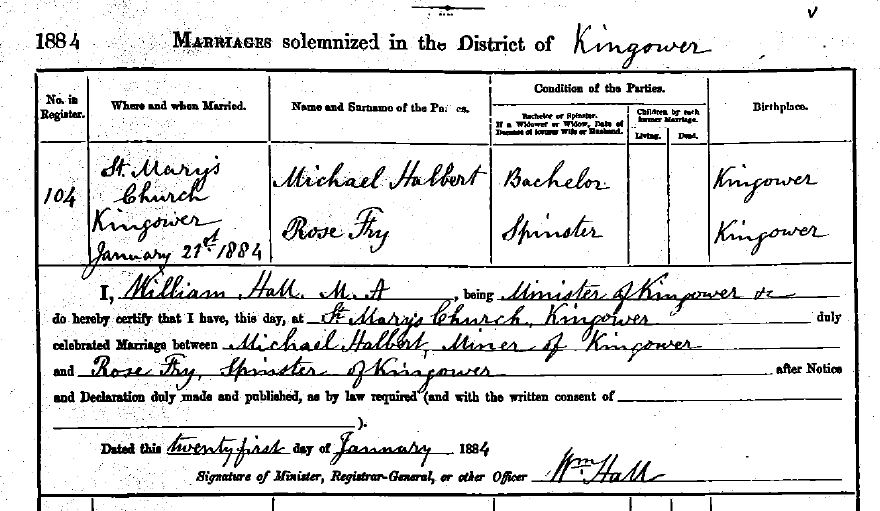 1884 MARRIAGES solemnized in the District of Kingower
No. in Register.
Where and when Married.
Name and Surname of the Pa   es.
Condition of the Parties.
Bachelor or Spinster. If a Widower or Widow, Date of Decease of former Wife or Husband.
Children by each former Marriage.
Living. Dead.
Birthplace.
104
St. Mary's
Church
Kingower
January 21st 1884
Michael Halbert Bachelor Kingower
Rose Fry Spinster Kingower
I, William Hall. M. A, being Minister of Kingower &c
do hereby certify that I have, this day, at St. Mary's Church, Kingower duly
celebrated Marriage between Michael Halbert, Miner of Kingower
and Rose Fry, Spinster of Kingower after Notice
and Declaration duly made and published, as by law required (and with the written consent of
).
Dated this twenty first day of January 1884
Signature of Minister, Registrar-General, or other Officer Wm Hall